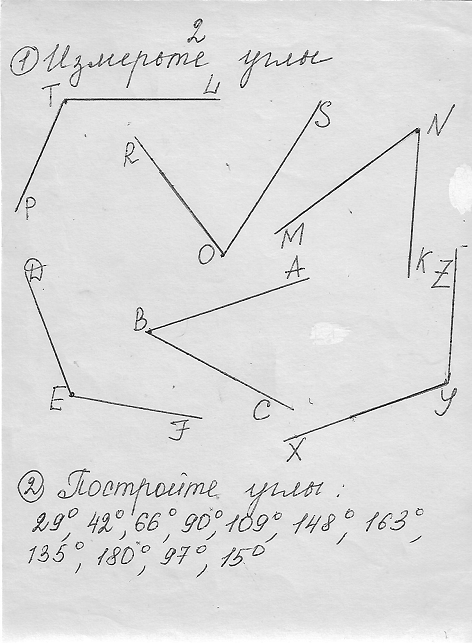 2
① Измерьте углы
T L
S
N
R
P
O M
K Z
D A
B
E C Y
F
X
② Постройте углы:
29°, 42°, 66°, 90°, 109°, 148°, 163°,
135°, 180°, 97°, 15°